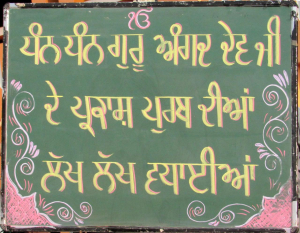 ੴ
ਧੰਨ ਧੰਨ ਗੁਰੂ ਅੰਗਦ ਦੇਵ ਜੀ
ਦੇ ਪ੍ਰਕਾਸ਼ ਪੁਰਬ ਦੀਆਂ
ਲੱਖ ਲੱਖ ਵਧਾਈਆਂ